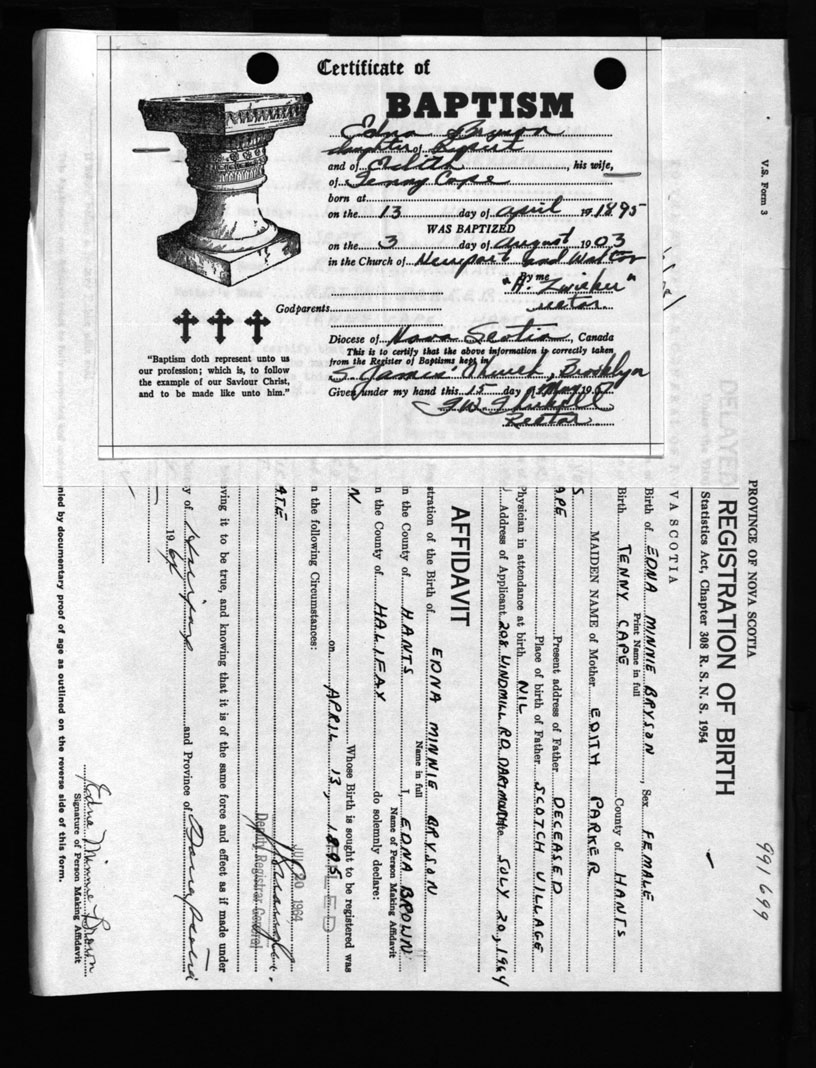 Certificate of
BAPTISM
Edna Bryson
daughter of Rupert
and of Edith, his wife,
of Tenny Cape
born at
on the 13 day of April 19 1895
WAS BAPTIZED
on the 3 day of August 1903
in the Church of Newport and Walton
By me
"A. Zwicker"
rector
Godparents
Diocese of Nova Scotia, Canada
This is to certify that the above information is correctly taken
from the Register of Baptisms kept in
S. James' Church, Brooklyn
Given under my hand this 15 day of May 19
Rector
"Baptism doth represent unto us
our profession; which is, to follow
the example of our Saviour Christ,
and to be made like unto him."
V.S. Form 3
991699
PROVINCE OF NOVA SCOTIA
DELAYED
REGISTRATION OF BIRTH
Statistics Act, Chapter 308 R. S. N. S. 1954
VA SCOTIA
Birth of EDNA MINNIE BRYSON, Sex FEMALE
Print Name in full
Birth TENNY CAPE County of HANTS
MAIDEN NAME of Mother EDITH PARKER
S
APE Present address of Father DECEASED
Place of birth of Father SCOTCH VILLAGE
Physician in attendance at birth NIL
Address of Applicant 208 WINDMILL RD. DARTMOUTH JULY 20, 1964
AFFIDAVIT
stration of the Birth of EDNA MINNIE BRYSON
Name in full
in the County of HANTS I, EDNA BROWN
Name of Person Making Affidavit
in the County of HALIFAX do solemnly declare:
N Whose Birth is sought to be registered was
on APRIL 13, 1895
n the following Circumstances:
ATE
JUL 20 1964
Deputy Registrar General
eving it to be true, and knowing that it is of the same force and effect as if made under
ty of Halifax and Province of Nova Scotia
19 64
Edna Minnie Brown
Signature of Person Making Affidavit
nied by documentary proof of age as outlined on the reverse side of this form.